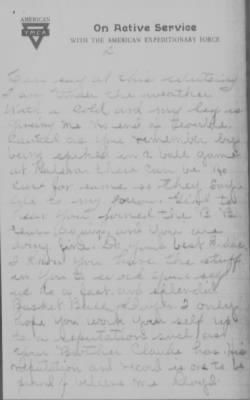 AMERICAN
YMCA
On Active Service
WITH THE AMERICAN EXPEDITIONARY FORCE
2
I am under the weather
with a cold and my leg is
giving me no end of trouble
as you remember by
being spiked in a ball game
at there can be no
cure for same so they say
to my sorrow. Glad to
hear you joined the B B
team again and you are
doing fine. Do your best
I know you have the stuff
in you to
us to a fast and splendid
Basket Ball I only
hope you work your self up
to a reputation such as
your Brother Claude has his
reputation and record is one to be
proud of believe me Lloyd